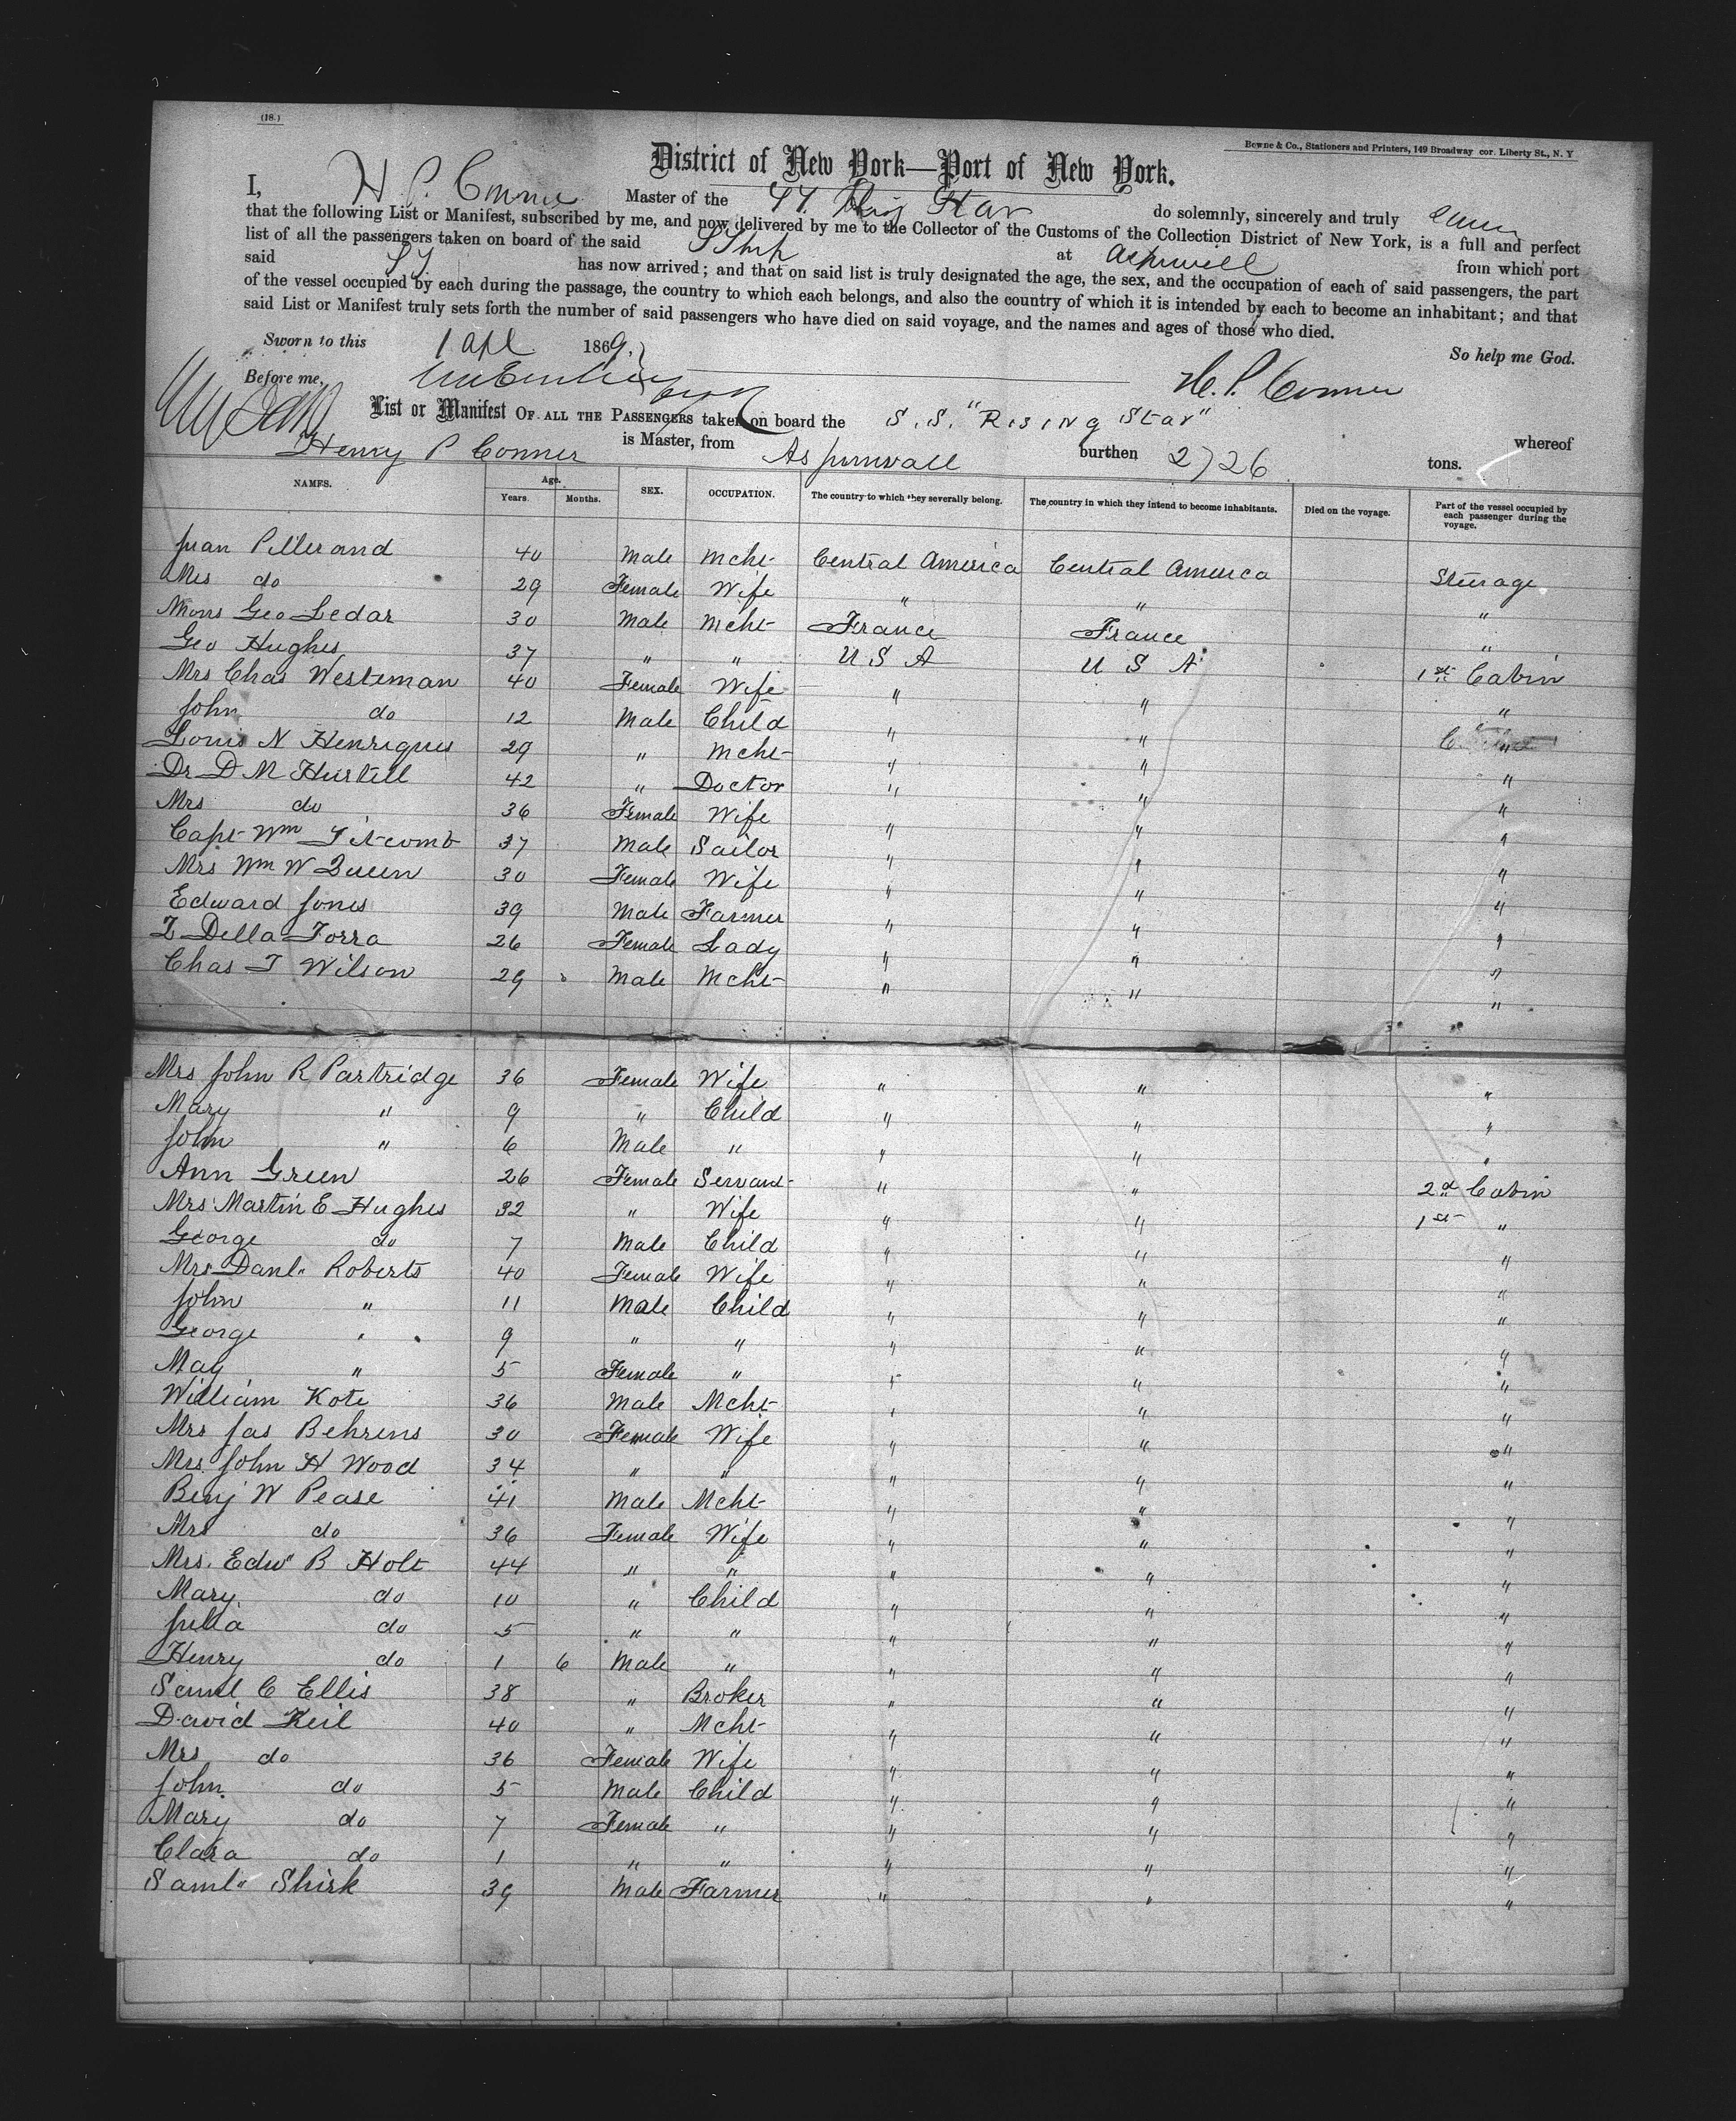 (18.)
Bowne & Co., Stationers and Printers, 149 Broadway cor. Liberty St., N. Y
District of New York—Port of New York.
I, H P. Conner Master of the SS. Rising Star do solemnly, sincerely and truly swear
that the following List or Manifest, subscribed by me, and now delivered by me to the Collector of the Customs of the Collection District of New York, is a full and perfect
list of all the passengers taken on board of the said SShip at Aspinwall from which port
said SS has now arrived; and that on said list is truly designated the age, the sex, and the occupation of each of said passengers, the part
of the vessel occupied by each during the passage, the country to which each belongs, and also the country of which it is intended by each to become an inhabitant; and that
said List or Manifest truly sets forth the number of said passengers who have died on said voyage, and the names and ages of those who died.
So help me God.
Sworn to this 1 Apl 1869,
Before me, H. P. Conner
List or Manifest OF ALL THE PASSENGERS taken on board the S. S. "Rising Star" whereof
Henry P Conner is Master, from Aspinwall burthen 2726 tons.
NAMES. Age. Years. Months. SEX. OCCUPATION. The country to which they severally belong. The country in which they intend to become inhabitants. Died on the voyage. Part of the vessel occupied by each passenger during the voyage.
Juan Pellerand 40 Male Mcht Central America Central America Steerage
Mrs do 29 Female Wife " " "
Mons Geo Ledar 30 Male Mcht France France "
Geo Hughes 37 " " U S A U S A 1st Cabin
Mrs Chas Westeman 40 Female Wife " " "
John do 12 Male Child " " "
Louis N Henriques 29 " Mcht " " "
Dr D M Hurtell 42 " Doctor " " "
Mrs do 36 Female Wife " " "
Capt Wm Titcomb 37 Male Sailor " " "
Mrs Wm W Queen 30 Female Wife " " "
Edward Jones 39 Male Farmer " " "
Z Della Torra 26 Female Lady " " "
Chas T Wilson 29 Male Mcht " " "
Mrs John R Partridge 36 Female Wife " " "
Mary " 9 " Child " " "
John " 6 Male " " " "
Ann Green 26 Female Servant " " 2d Cabin
Mrs Martin E Hughes 32 " Wife " " 1st "
George do 7 Male Child " " "
Mrs Danl" Roberts 40 Female Wife " " "
John " 11 Male Child " " "
George " 9 " " " " "
May " 5 Female " " " "
William Kote 36 Male Mcht " " "
Mrs Jas Behrens 30 Female Wife " " "
Mrs John H Wood 34 " " " " "
Benj W Pease 41 Male Mcht " " "
Mrs do 36 Female Wife " " "
Mrs. Edw" B Holt 44 " " " " "
Mary do 10 " Child " " "
Julia do 5 " " " " "
Henry do 1 6 Male " " " "
Saml C Ellis 38 " Broker " " "
David Keil 40 " Mcht " " "
Mrs do 36 Female Wife " " "
John do 5 Male Child " " "
Mary do 7 Female " " " "
Clara do 1 " " " " "
Saml" Shirk 39 Male Farmer " " "